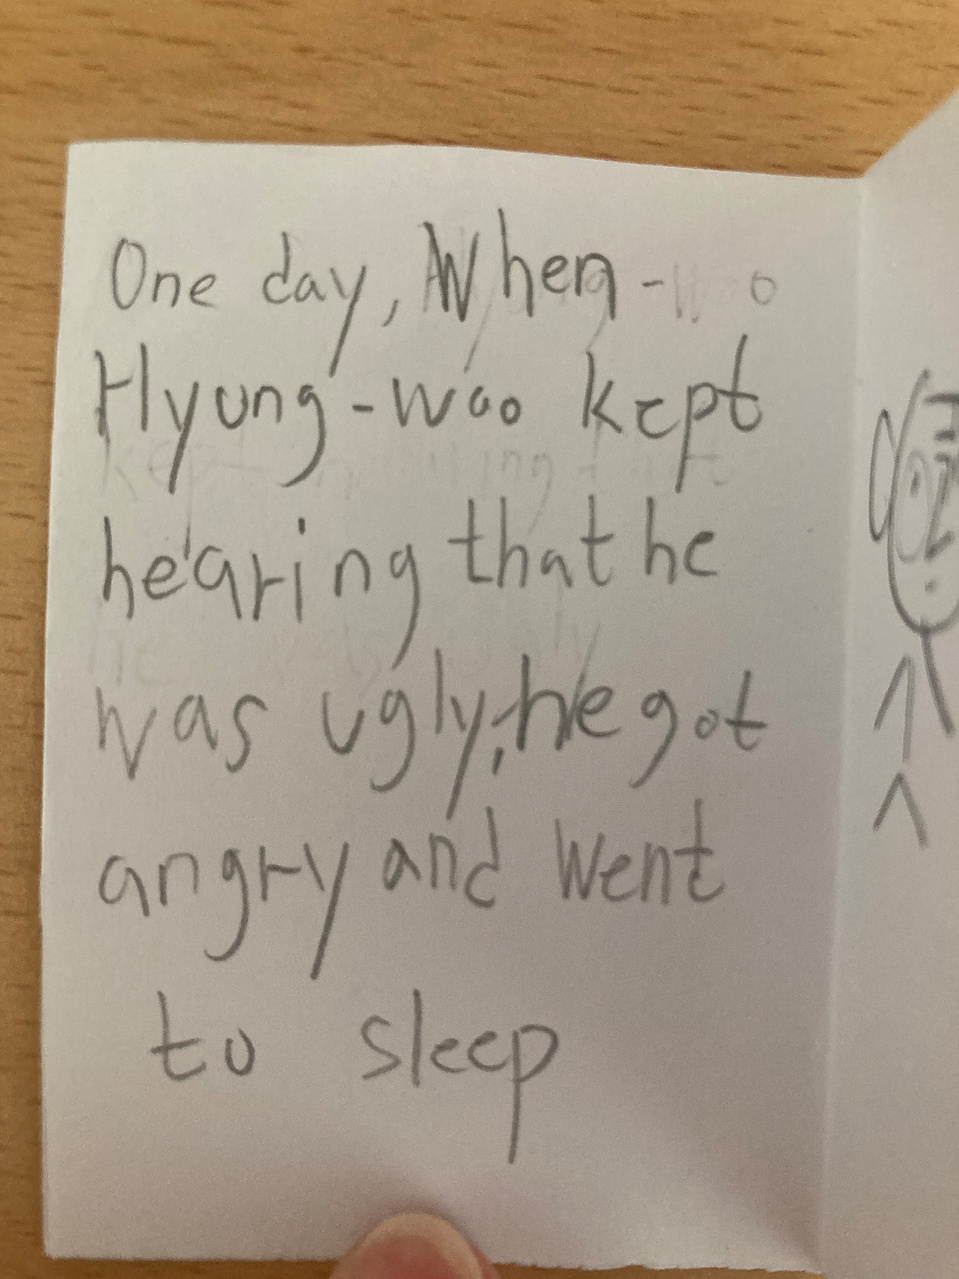 One day, When
Hyung-woo kept
hearing that he
was ugly, he got
angry and went
to sleep